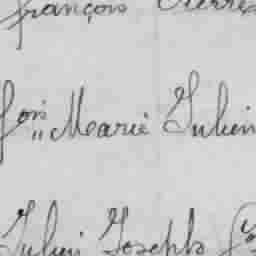 françois Pierre
fois Marie Julien
Julien Joseph